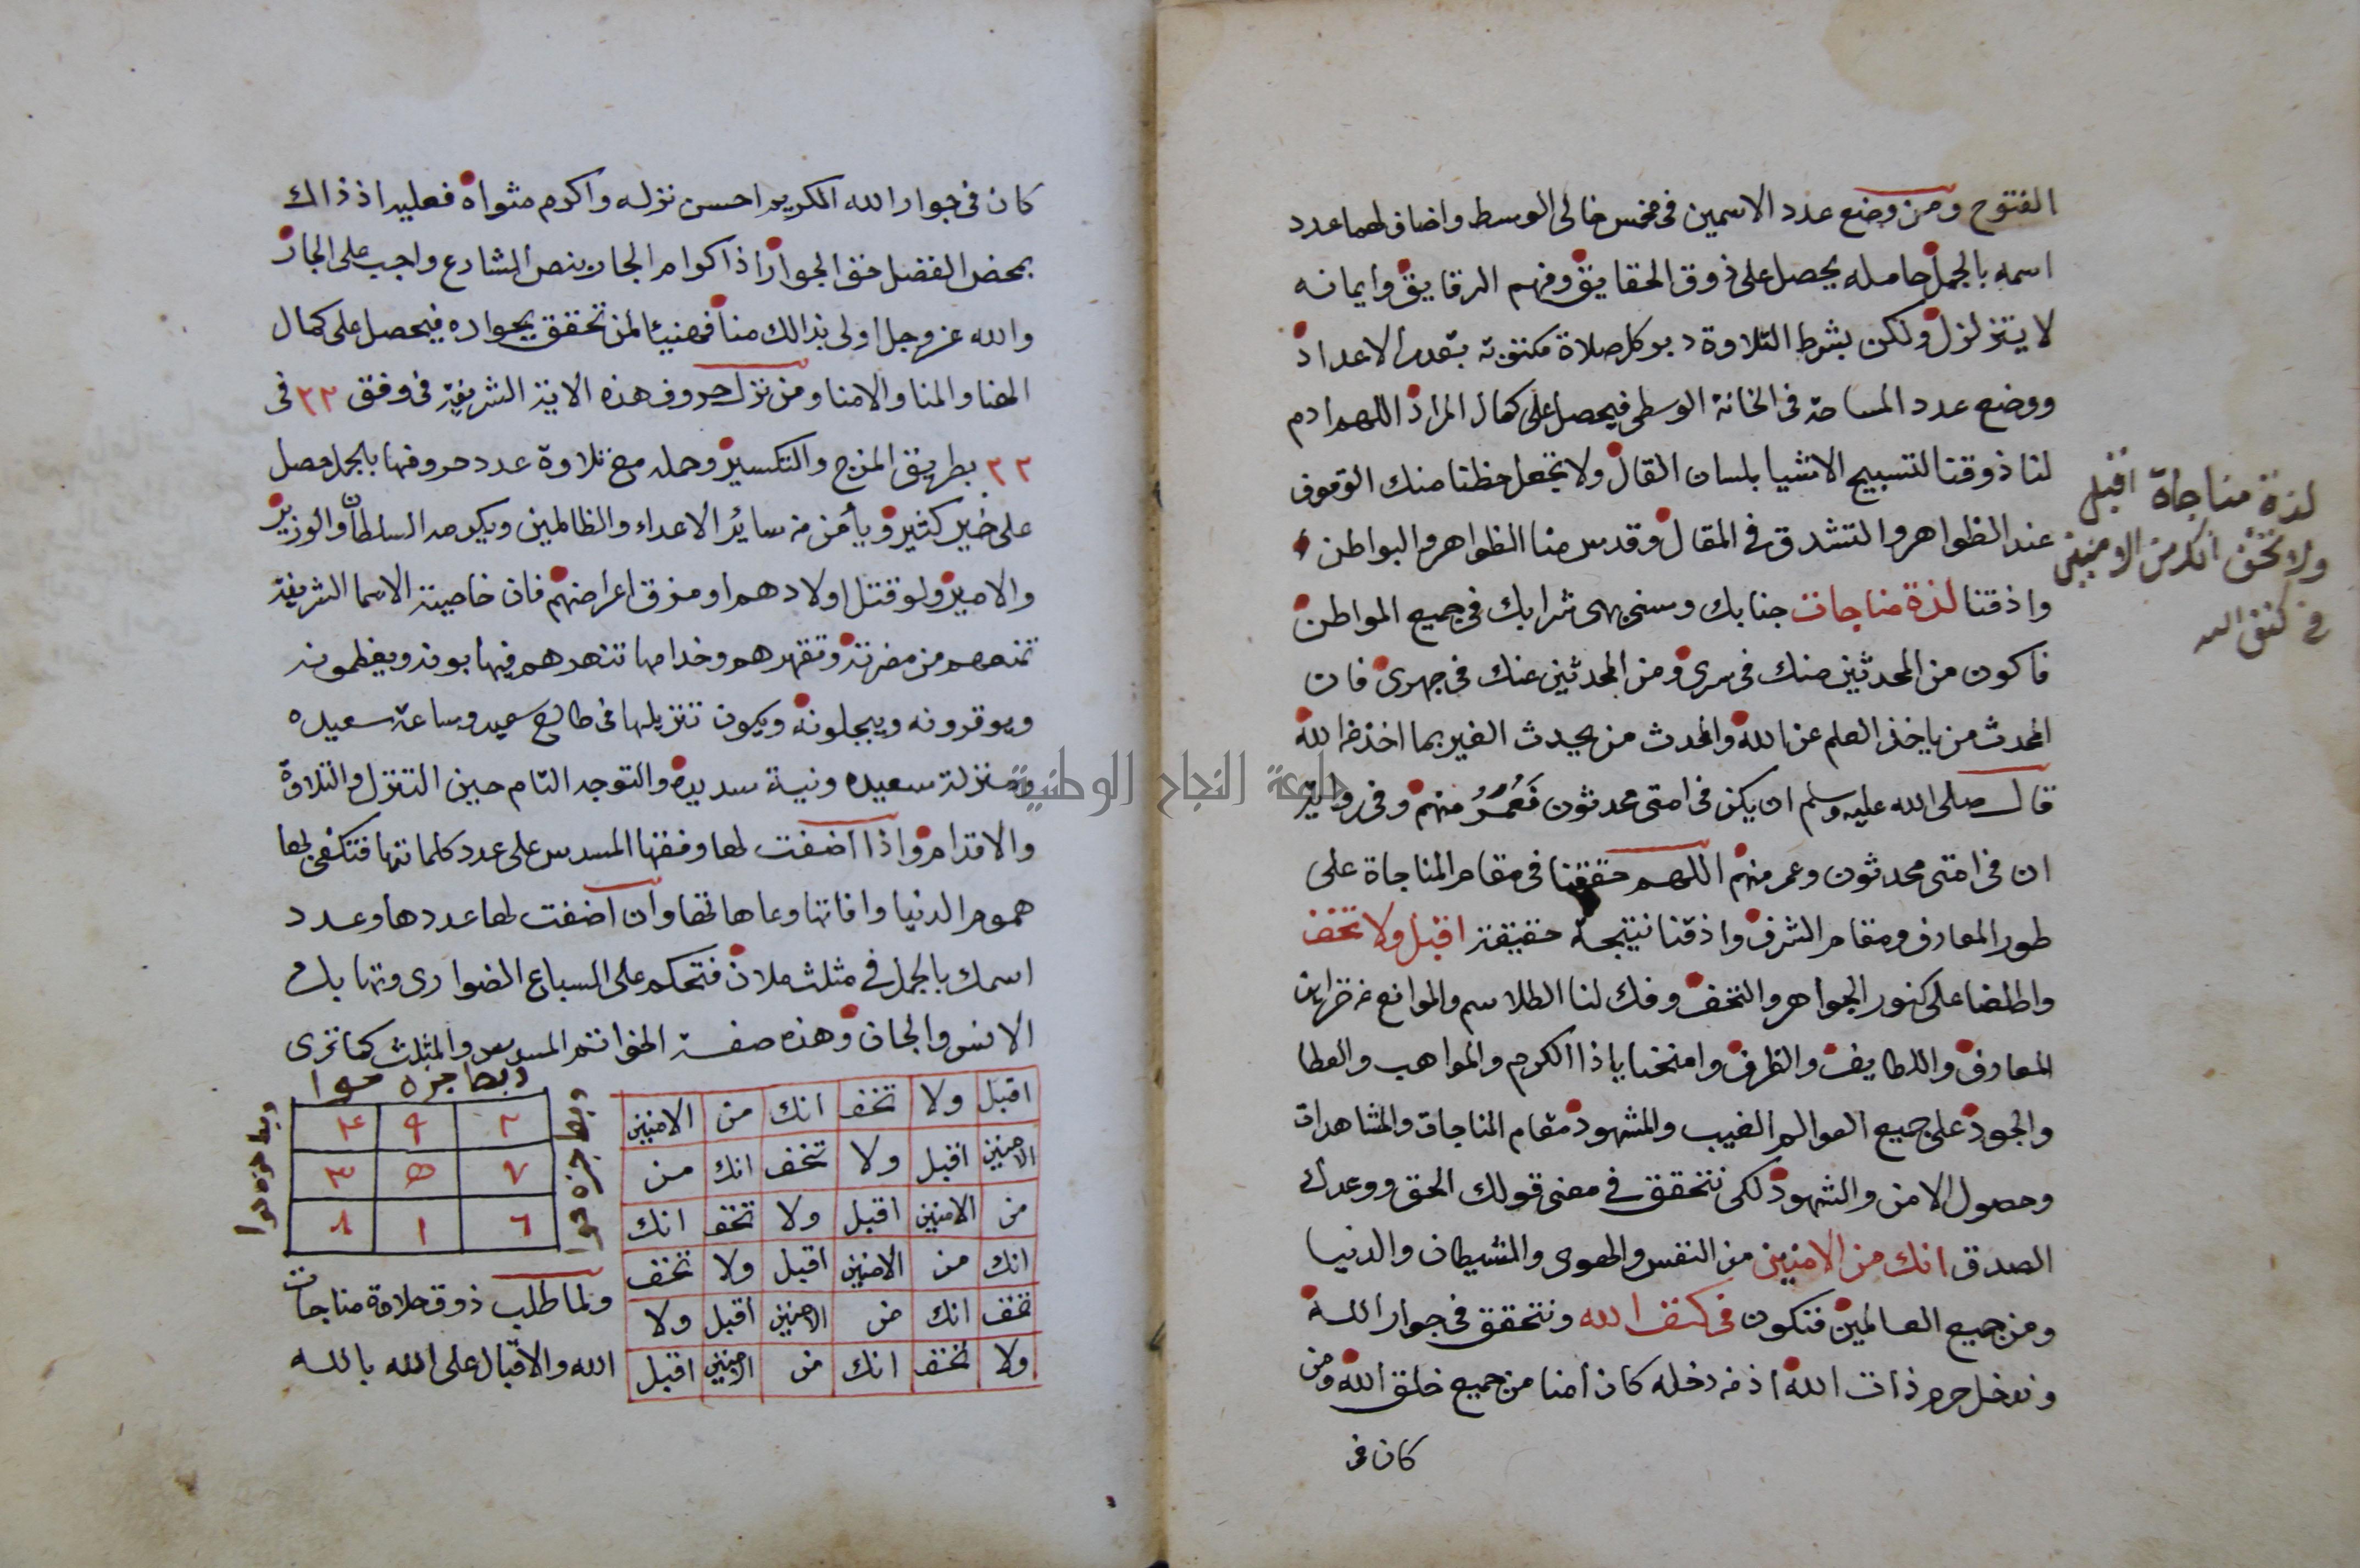 الفتوح ومن وضع عدد الاسمين في مخمس خالى الوسط واضاف لهما عدد
اسمه بالجمل حامله يحصل على ذوق الحقايق وفهم الرقايق وايمانه
لا يتزلزل ولكن بشرط التلاوة دبر كل صلاة مكتوبة بقدر الاعداد
ووضع عدد المساحة فى الخانة الوسطى فيحصل على كمال المراد اللهم ادم
لنا ذوقنا لتسبيح الاشيا بلسان القال ولا تجعل حظنا منك الوقوف
عند الظواهر والتشدق في المقال وقدس منا الظواهر والبواطن
واذقنا لذة مناجات جنابك وسنى بهى شرابك فى جميع المواطن
فاكون من المحدثين منك فى سرى ومن المحدثين عنك فى جهرى فان
المحدث من ياخذ العلم عن الله والمحدث من يحدث الغير بما اخذ عن الله
قال صلى الله عليه وسلم ان يكن فى امتى محدثون فَعُمَرُ منهم وفى رواية
ان فى امتى محدثون وعمر منهم اللهم حققنا فى مقام المناجاة على
طور المعارف ومقام الشرف واذقنا نتيجة حقيقة اقبل ولا تخف
واطلعنا على كنوز الجواهر والتحف وفك لنا الطلاسم والموانع عن خزاين
المعارف واللطايف والظرف وامنحنا ياذا الكرم والمواهب والعطا
والجود على جميع العوالم الغيب والشهود مقام المناجات والمشاهدات
وحصول الامن والشهود لكى نتحقق في معنى قولك الحق ووعدك
الصدق انك من الامنين من النفس والهوى والشيطان والدنيا
ومن جميع العالمين فنكون فى كنف الله ونتحقق فى جوار الله
وندخل حرم ذات الله اذ من دخله كان امنا من جميع خلق الله ومن
كان فى
لذة مناجاة اقبل
ولا تخف انك من الامنين
في كنف الله
كان فى جوار الله الكريم احسن نزله واكرم مثواه فعليه اذ ذاك
بمحض الفضل حق الجوار اذ اكرام الجار بنص الشارع واجب على الجار
والله عز وجل اولى بذالك منا فهنيئا لمن تحقق بجواره فيحصل على كمال
الهنا والمنا والامنا ومن نزل حروف هذه الاية الشريفة فى وفق ٢٢ فى
٢٢ بطريق المزج والتكسير وحمله مع تلاوة عدد حروفها بالجمل حصل
على خير كثير ويأمن من سائر الاعداء والظالمين ويكرمه السلطان والوزير
والامير ولو قتل اولادهم او مزق اعراضهم فان خاصية الاسما الشريفة
تمنعهم من مضرته وتقهرهم وخدامها تنهدهم فيهابونه ويعظمونه
ويوقرونه ويبجلونه ويكون تنزيلها فى طالع سعيد وساعة سعيده
ومنزلة سعيده ونية سديده والتوجه التام حين التنزل والتلاوة
والاقدام واذا اضفت لها وفقها المسدس على عدد كلماتها فتكفى لها
هموم الدنيا وافاتها وعاهاتها وان اضفت لها عددها وعدد
اسمك بالجمل في مثلث ملان فتحكم على السباع الضوارى وتهابك
الانس والجان وهذه صفة الخواتم المسدس والمثلث كما ترى
اقبل ولا تخف انك من الامنين
الامنين اقبل ولا تخف انك من
من الامنين اقبل ولا تخف انك
انك من الامنين اقبل ولا تخف
تخف انك من الامنين اقبل ولا
ولا تخف انك من الامنين اقبل
٢ ٩ ٤
٧ ٥ ٣
٦ ١ ٨
ولما طلب ذوق حلاوة مناجات
الله والاقبال على الله بالله
جامعة النجاح الوطنية